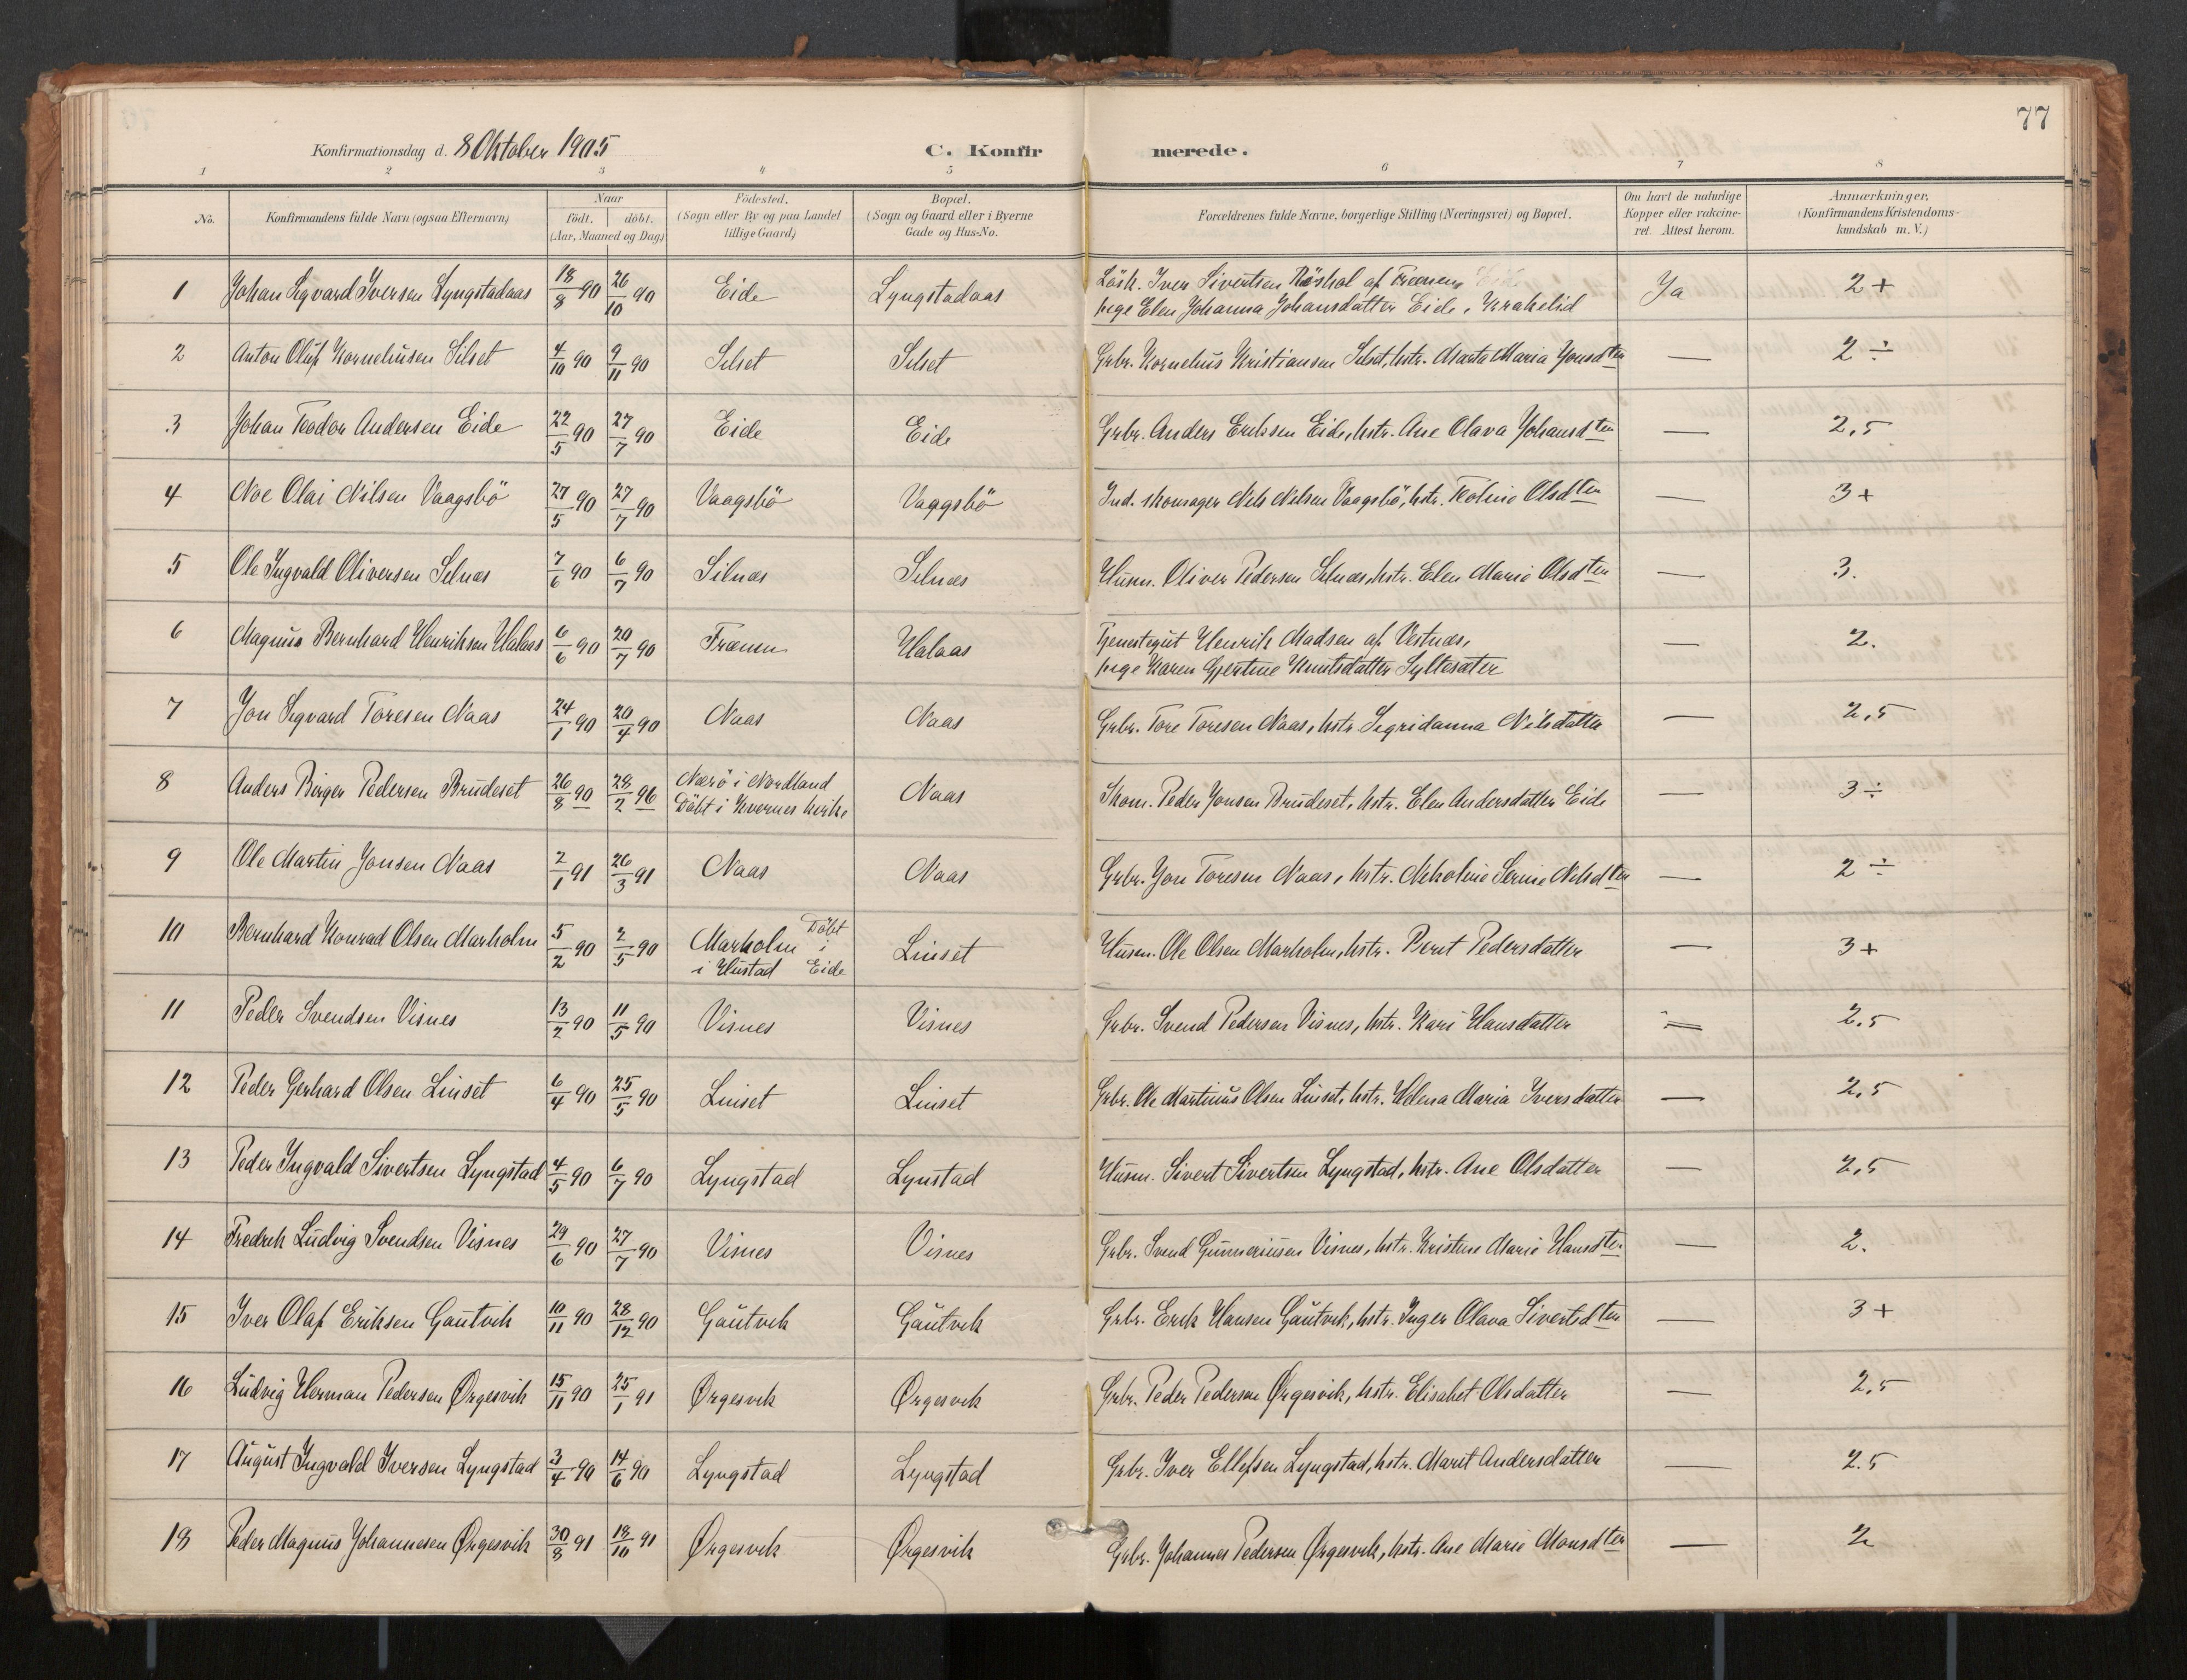 77
Konfirmationsdag d. 8 Oktober 1905
C. Konfirmerede.
1 2 3 4 5 6 7 8
No. Konfirmandens fulde Navn (ogsaa Efternavn) Naar födt. döbt. (Aar, Maaned og Dag) Födested. (Sogn eller By og paa Landet tillige Gaard) Bopæl. (Sogn og Gaard eller i Byerne Gade og Hus-No. Forældrenes fulde Navne, borgerlige Stilling (Næringsvei) og Bopæl. Om havt de naturlige Kopper eller vakcineret. Attest herom. Anmærkninger. (Konfirmandens Kristendomskundskab m. V.)
1 Johan Sigvard Iversen Lyngstadaas 18/8 90 26/10 90 Eide Lyngstadaas Lösk. Iver Sivertsen af Frænen, Ja 2+
pige Elen Johanna Johansdatter Eide, Krakelid
2 Anton Oluf Korneliusen Silset 4/10 90 9/11 90 Silset Silset Grbr. Kornelius Kristiansen Silset, hstr. Marta Maria Jonsdter — 2 ÷
3 Johan Teodor Andersen Eide 22/5 90 27/7 90 Eide Eide Grbr. Anders Eriksen Eide, hstr. Ane Olava Johansdter — 2,5
4 Noe Olai Nilsen Vaagsbö 27/5 90 27/7 90 Vaagsbö Vaagsbö Ind. skomager Nils Nilsen Vaagsbö, hstr. Oldter — 3+
5 Ole Ingvald Oliversen Silnæs 7/6 90 6/7 90 Silnæs Silnæs Husm. Oliver Pedersen Silnæs, hstr. Elen Marie Olsdter — 3.
6 Magnus Bernhard Henriksen Halaas 6/6 90 20/7 90 Frænen Halaas Tjenestegut Henrik Madsen af Vestnæs, — 2.
pige Karen Gjertine Knutsdatter Syltesæter
7 Jon Sigvard Toresen Naas 24/1 90 20/4 90 Naas Naas Grbr. Tore Toresen Naas, hstr. Sigridanna Nilsdatter — 2,5
8 Anders Birger Pedersen Brudeset 26/8 90 28/2 96 Nærö i Nordland Döbt i Kvernes kirke Naas Skom. Peder Jonsen Brudeset, hstr. Elen Andersdatter Eide — 3 ÷
9 Ole Martin Jonsen Naas 2/1 91 26/3 91 Naas Naas Grbr. Jon Toresen Naas, hstr. Nikoline Serine Nilsdter — 2 ÷
10 Bernhard Konrad Olsen Marholm 5/2 90 2/5 90 Marholm i Hustad Döbt i Eide Linset Husm. Ole Olsen Marholm, hstr. Berit Pedersdatter — 3+
11 Peder Svendsen Visnes 13/2 90 11/5 90 Visnes Visnes Grbr. Svend Pedersen Visnes, hstr. Kari Hansdatter — 2,5
12 Peder Gerhard Olsen Linset 6/4 90 25/5 90 Linset Linset Grbr. Ole Martinus Olsen Linset, hstr. Helena Maria Iversdatter — 2,5
13 Peder Ingvald Sivertsen Lyngstad 4/5 90 6/7 90 Lyngstad Lynstad Husm. Sivert Sivertsen Lyngstad, hstr. Ane Olsdatter — 2,5
14 Fredrik Ludvig Svendsen Visnes 29/6 90 27/7 90 Visnes Visnes Grbr. Svend Gunneriusen Visnes, hstr. Kristine Marie Hansdter — 2.
15 Iver Olaf Eriksen Gautvik 10/11 90 28/12 90 Gautvik Gautvik Grbr. Erik Hansen Gautvik, hstr. Inger Olava Sivertsdter — 3+
16 Ludvig Herman Pedersen Ørgesvik 15/11 90 25/1 91 Ørgesvik Ørgesvik Grbr. Peder Pedersen Ørgesvik, hstr. Elisabet Olsdatter — 2,5
17 August Ingvald Iversen Lyngstad 3/4 90 14/6 90 Lyngstad Lyngstad Grbr. Iver Ellefsen Lyngstad, hstr. Marit Andersdatter — 2.5
18 Peder Magnus Johannesen Ørgesvik 30/8 91 18/10 91 Ørgesvik Ørgesvik Grbr. Johannes Pedersen Ørgesvik, hstr. Ane Marie Monsdter — 2